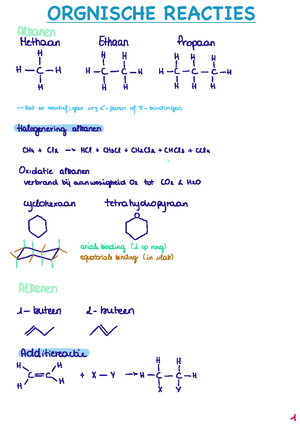 ORGNISCHE REACTIES
Alkanen
Methaan Ethaan Propaan
H H H H H H
H-C-H H-C-C-H H-C-C-C-H
H H H H H H
Halogenering alkanen
CH4 + Cl2 → HCl + CH3Cl + CH2Cl2 + CHCl3 + CCl4
Oxidatie alkanen
verbrand bij aanwezigheid O2 tot CO2 & H2O
cyclohexaan tetrahydropyraan
O
axiale binding (⊥ op ring)
equatoriale binding (in vlak)
Alkenen
1-buteen 2-buteen
Additiereactie
H H H H
C=C + X-Y → H-C-C-H
H H X Y
1